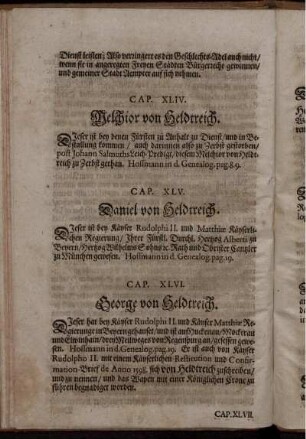 Dienst leisten; Also verringere es den Geschlechts-Adel auch nicht/
wenn sie in angeregten Freyen Städten Bürgerrecht gewinnen/
und gemeiner Stadt Aempter auf sich nehmen.
CAP. XLIV.
Melchior von Heldtreich.
Dieser ist bey denen Fürsten zu Anhalt zu Dienst/ und in Be-
stallung kommen / auch darinnen also zu Zerbst gestorben/
post Johann Salmuths Leich-Predigt/ diesem Melchior von Heldt-
reich zu Zerbst gethan. Hoffmann in d. Genealog. pag. 8. 9.
CAP. XLV.
Daniel von Heldtreich.
Dieser ist bey Käyser Rudolphi II. und Matthiæ Käyserli-
chen Regierung/ Ihrer Fürstl. Durchl. Hertzog Alberti zu
Beyern/ Hertzog Wilhelms Sohn/ 2c. Rath und Obrister Cantzler
zu München gewesen. Hoffmann in d. Genealog. pag. 19.
CAP. XLVI.
George von Heldtreich.
Dieser hat bey Käyser Rudolphi II. und Käyser Matthiæ Re-
gierunge in Beyern gehauset/ und ist auf
und drey Meilweges von Regenspurg an/ gesessen gewe-
sen. Hoffmann in d. Genealog. pag. 19. Er ist auch von Käyser
Rudolpho II. mit einem Käyserlichen Restitution und Confir-
mation-Brief de Anno 1598. sich von Heldtreich zuschreiben/
und zu nennen/ und das Wapen mit einer Königlichen Krone zu
führen begnadiget worden.
CAP. XLVII.